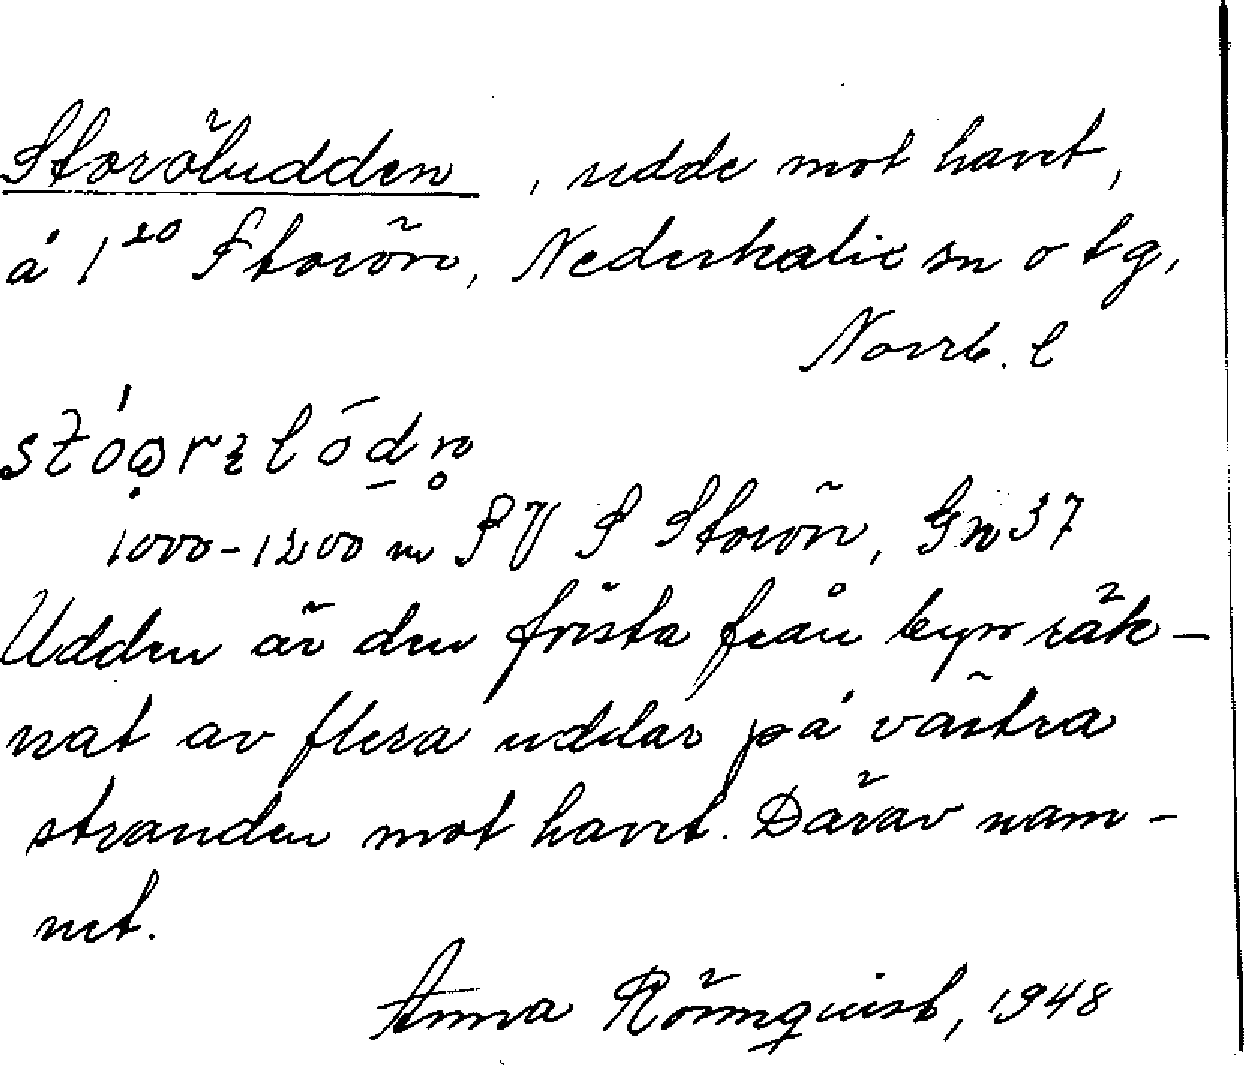 Storöludden, udde mot havet,
å 1²⁰ Storön, Nederkalix sn o tg,
Norrb. l
1000-1200 m SV S Storön, Gn 37
Udden är den första från byn räk-
nat av flera uddar på västra
stranden mot havet. Därav nam-
net.
Anna Rönnquist, 1948